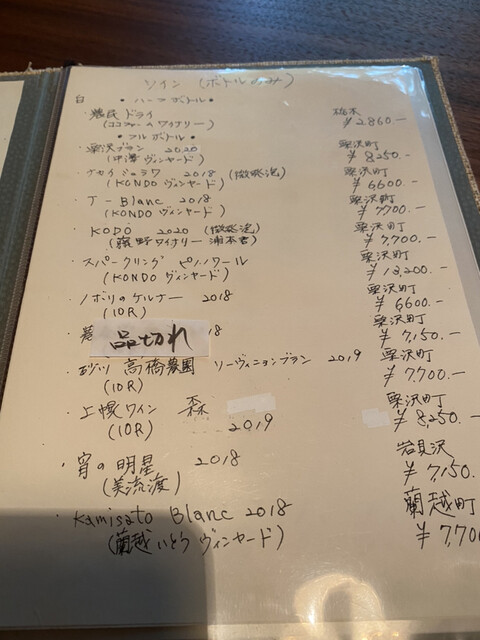 ワイン (ボトルのみ)
白 ・ハーフボトル・
・農民ドライ 栃木
(ココファームワイナリー) ¥2860.-
・フルボトル・
・栗沢ブラン 2020 栗沢町
(中澤ヴィンヤード) ¥8,250.-
・ナカイジュラワ 2018 (微発泡) 栗沢町
(KONDOヴィンヤード) ¥6600.-
・T-Blanc 2018 栗沢町
(KONDOヴィンヤード) ¥7700.-
・KODO 2020 (微発泡) 栗沢町
¥7,700.-
・スパークリング ピノノワール 栗沢町
(KONDOヴィンヤード) ¥13,200.-
・ノボリのケルナー 2018 栗沢町
(10R) ¥6600.-
品切れ 18 栗沢町
¥7,150.-
高橋農園 ソーヴィニョンブラン 2019 栗沢町
(10R) ¥7700.-
・上幌ワイン 森 栗沢町
(10R) 2019 ¥8,250.-
・宵の明星 2018 岩見沢
(美流渡) ¥7150.
・Kamisato Blanc 2018 蘭越町
(蘭越いとうヴィンヤード) ¥770